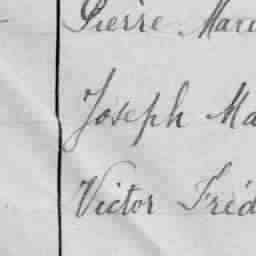 Pierre Mari
Joseph Ma
Victor Fréd